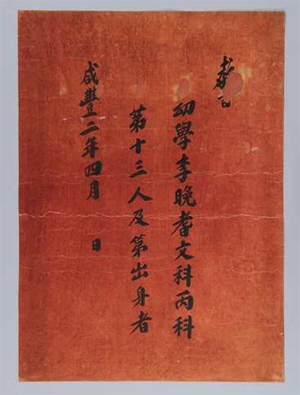 敎旨
幼學李晚耆文科丙科
第十三人及第出身者
咸豐二年四月 日